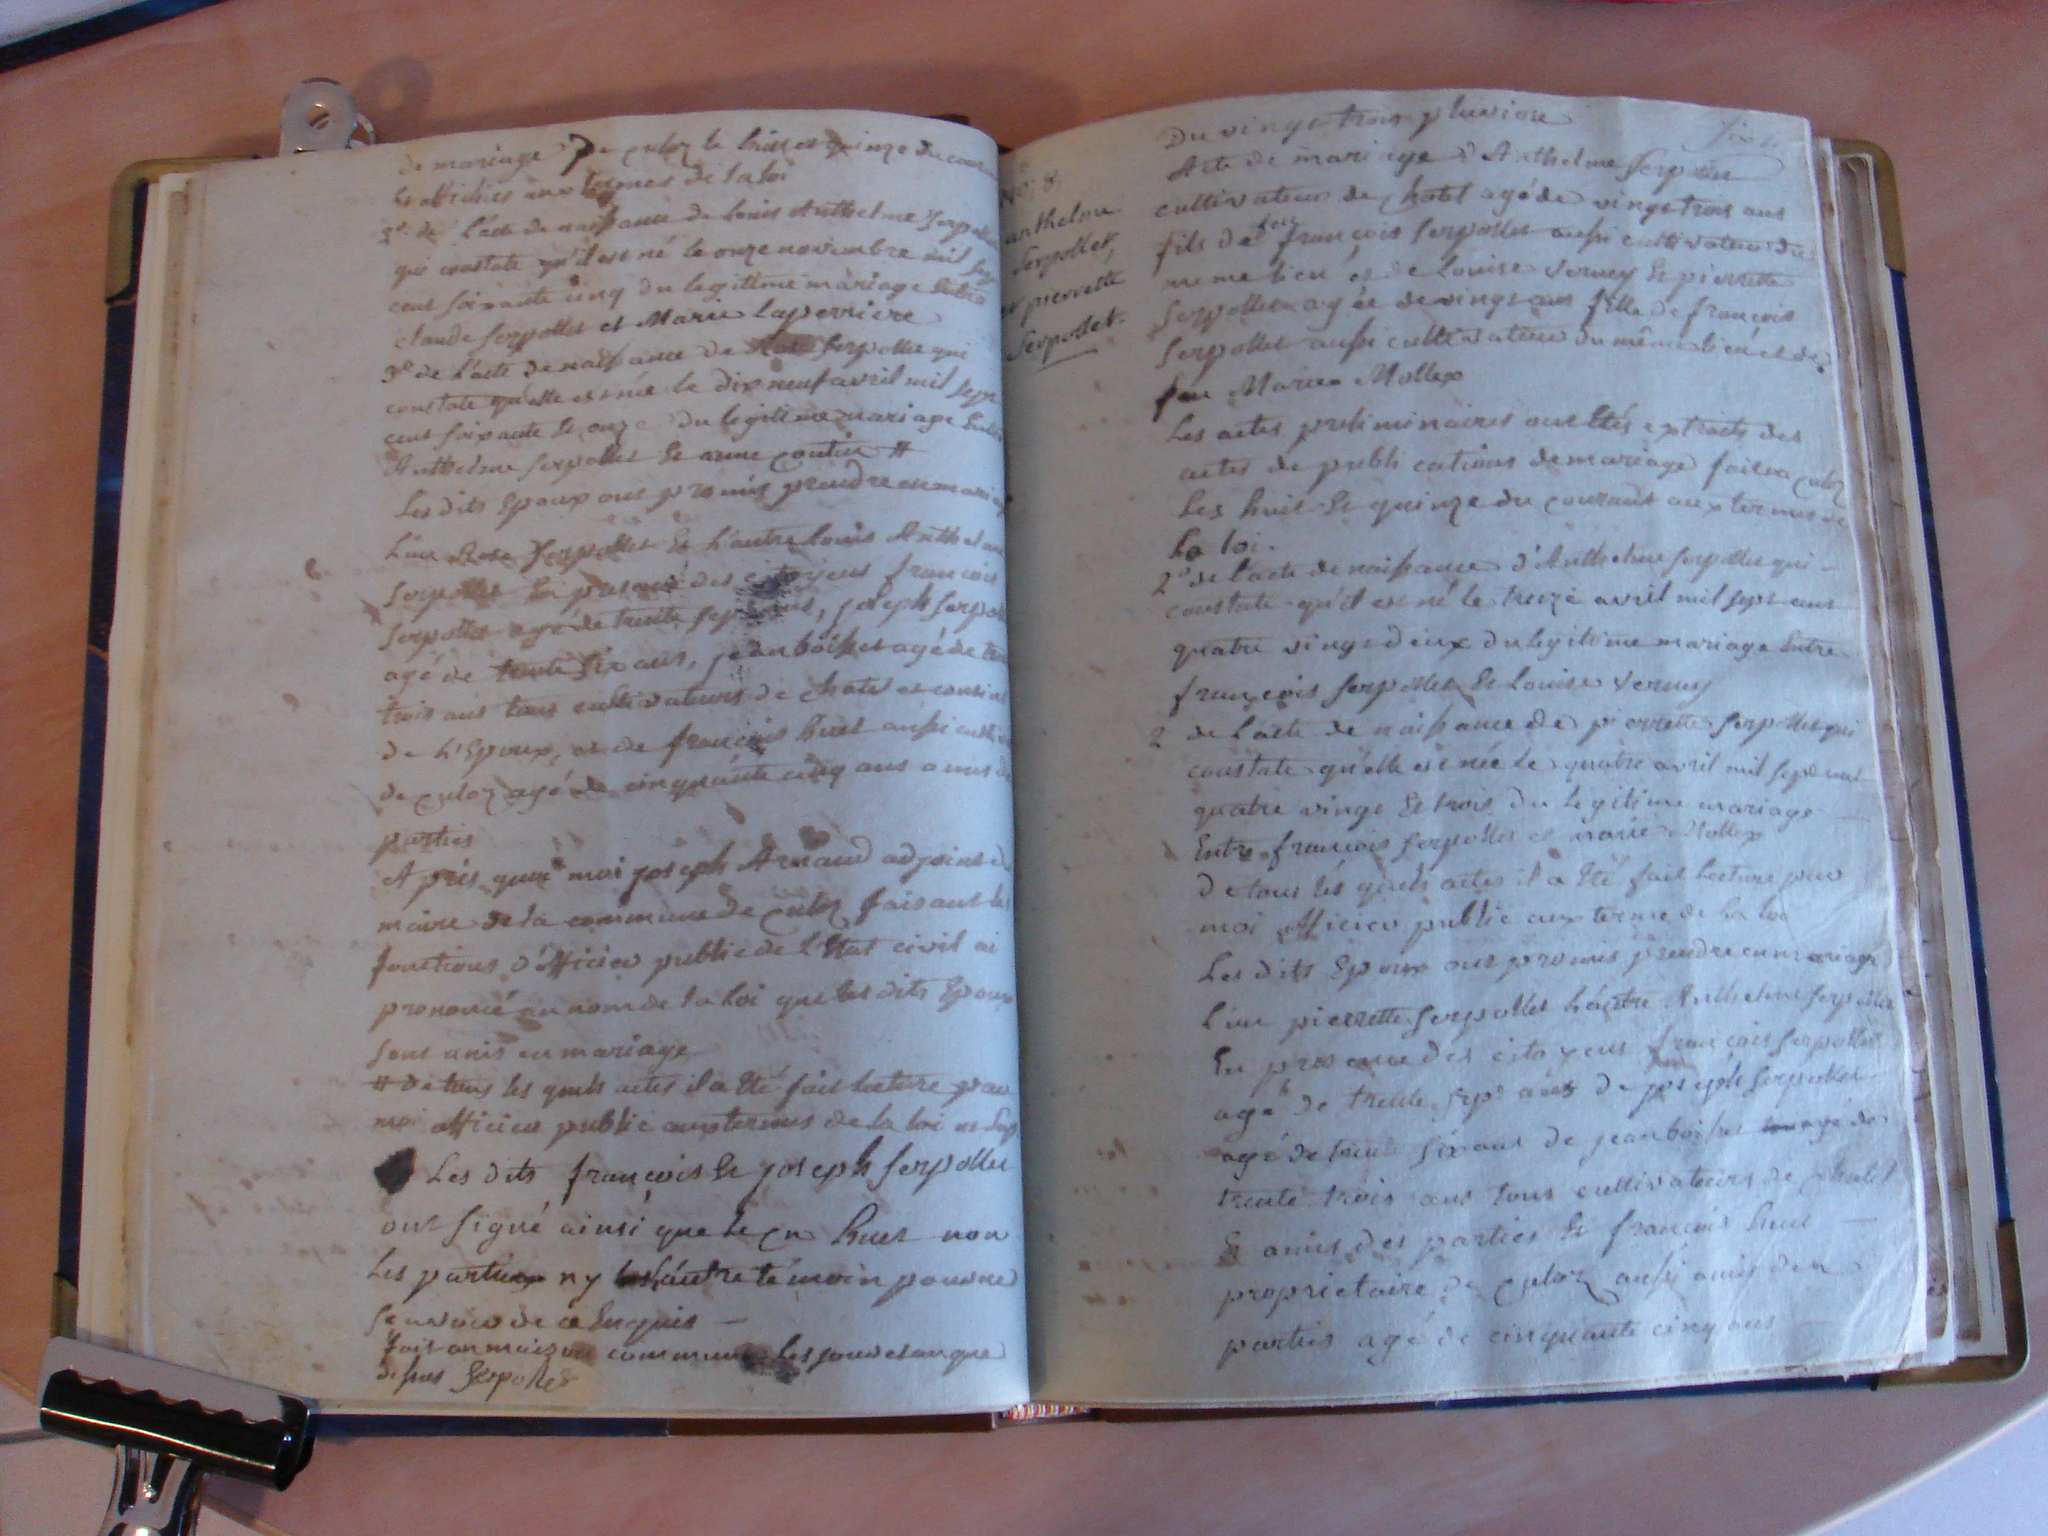 de mariage de culoz le huit et quinze du courant
les affiches aux termes de la loi
2° de l'acte de naissance de Louis Anthelme Serpollet
qui constate qu'il est né le onze novembre mil sept
cent soixante cinq du legitime mariage Entre
claude Serpollet et Marie laperriere
3° de l'acte de naissance de Rose Serpollet qui
constate qu'elle est née le dix neuf avril mil sept
cent soixante Et onze du legitime mariage Entre
Anthelme Serpollet Et anne #
Les dits Epoux ont promis prendre en mariage
L'un Rose Serpollet Et L'autre Louis Anthelme
Serpollet En presence des citoyens françois
Serpollet agé de trente sept ans, joseph Serpollet
agé de trente six ans, jean boisset agé de trente
trois ans tous cultivateurs de chatel et cousins
de L'Epoux, et de françois huet aussi cultivateur
de culoz agé de cinquante cinq ans amis des
parties
Aprés quoi moi joseph Arnaud adjoint du
maire de la commune de culoz faisant les
fonctions d'officier public de l'Etat civil ai
prononcé au nom de la loi que les dits Epoux
sont unis en mariage
# de tous les quels actes il a Eté fait lecture par
moi officier public aux termes de la loi
Les dits françois Et joseph Serpollet
ont signé ainsi que le cn huet non
Les parties ny l'autre témoin pour ne
savoir de ce Enquis
fait en maison commune les jour et an que
dessus Serpollet
Du vingt trois pluviose
N° 8.
Anthelme
Serpollet,
et pierrette
Serpollet.
Acte de mariage d'Anthelme Serpollet
cultivateur de chatel agé de vingt trois ans
fils de feu françois Serpollet aussi cultivateur du
meme lieu et de Louise Verney Et pierrette
Serpollet agée de vingt ans fille de françois
Serpollet aussi cultivateur du même lieu et de
feu Marie Mollex
Les actes preliminaires ont Etés extraits des
actes de publications de mariage fait a culoz
Les huit Et quinze du courant aux termes de
La loi.
2° de l'acte de naissance d'Anthelme Serpollet qui
constate qu'il est né le treize avril mil sept cent
quatre vingt deux du legitime mariage Entre
françois Serpollet Et Louise Verney
2 de l'acte de naissance de pierrette Serpollet qui
constate qu'elle est née le quatre avril mil sept cent
quatre vingt Et trois du Legitime mariage
Entre françois Serpollet et marie Mollex
De tous lés quels actes il a Eté fait Lecture par
moi officier public aux terme de la loi
Les dits Epoux ont promis prendre en mariage
L'un pierrette Serpollet L'autre Anthelme Serpollet
En presence des citoyens françois Serpollet
agé de trente sept ans de joseph Serpollet
agé de trente six ans de jean boisset agé de
trente trois ans tous cultivateurs de chatel
Et amis des parties Et françois huet
proprietaire de culoz aussi amis des
parties agé de cinquante cinq ans